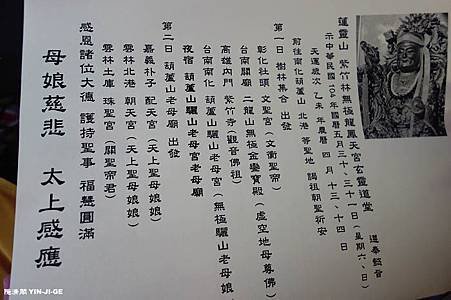 蓮靈山 紫竹林無極龍鳳天宮玄靈道堂 遵奉懿旨
示中華民國104年國曆五月三十、三十一日(星期六、日)
天運歲次 乙未年農曆 四月 十三、十四 日
前往南化葫蘆山 北港 等聖地 謁祖朝聖祈安
第一日 樹林集合 出發
彰化社頭 文聖宮(文衡聖帝)
台南關廟 二龍山無極金鑾寶殿(虛空地母尊佛)
台南南化 葫蘆山驪山老母宮(無極驪山老母娘
高雄內門 紫竹寺(觀音佛祖)
夜宿 葫蘆山驪山老母宮老母廟
第二日 葫蘆山老母廟 出發
嘉義朴子 配天宮(天上聖母娘娘)
雲林北港 朝天宮(天上聖母娘娘)
雲林土庫 珠聖宮(關聖帝君)
感恩諸位大德 護持聖事 福慧圓滿
母娘慈悲 太上感應
隱濟閣 YIN-JI-GE